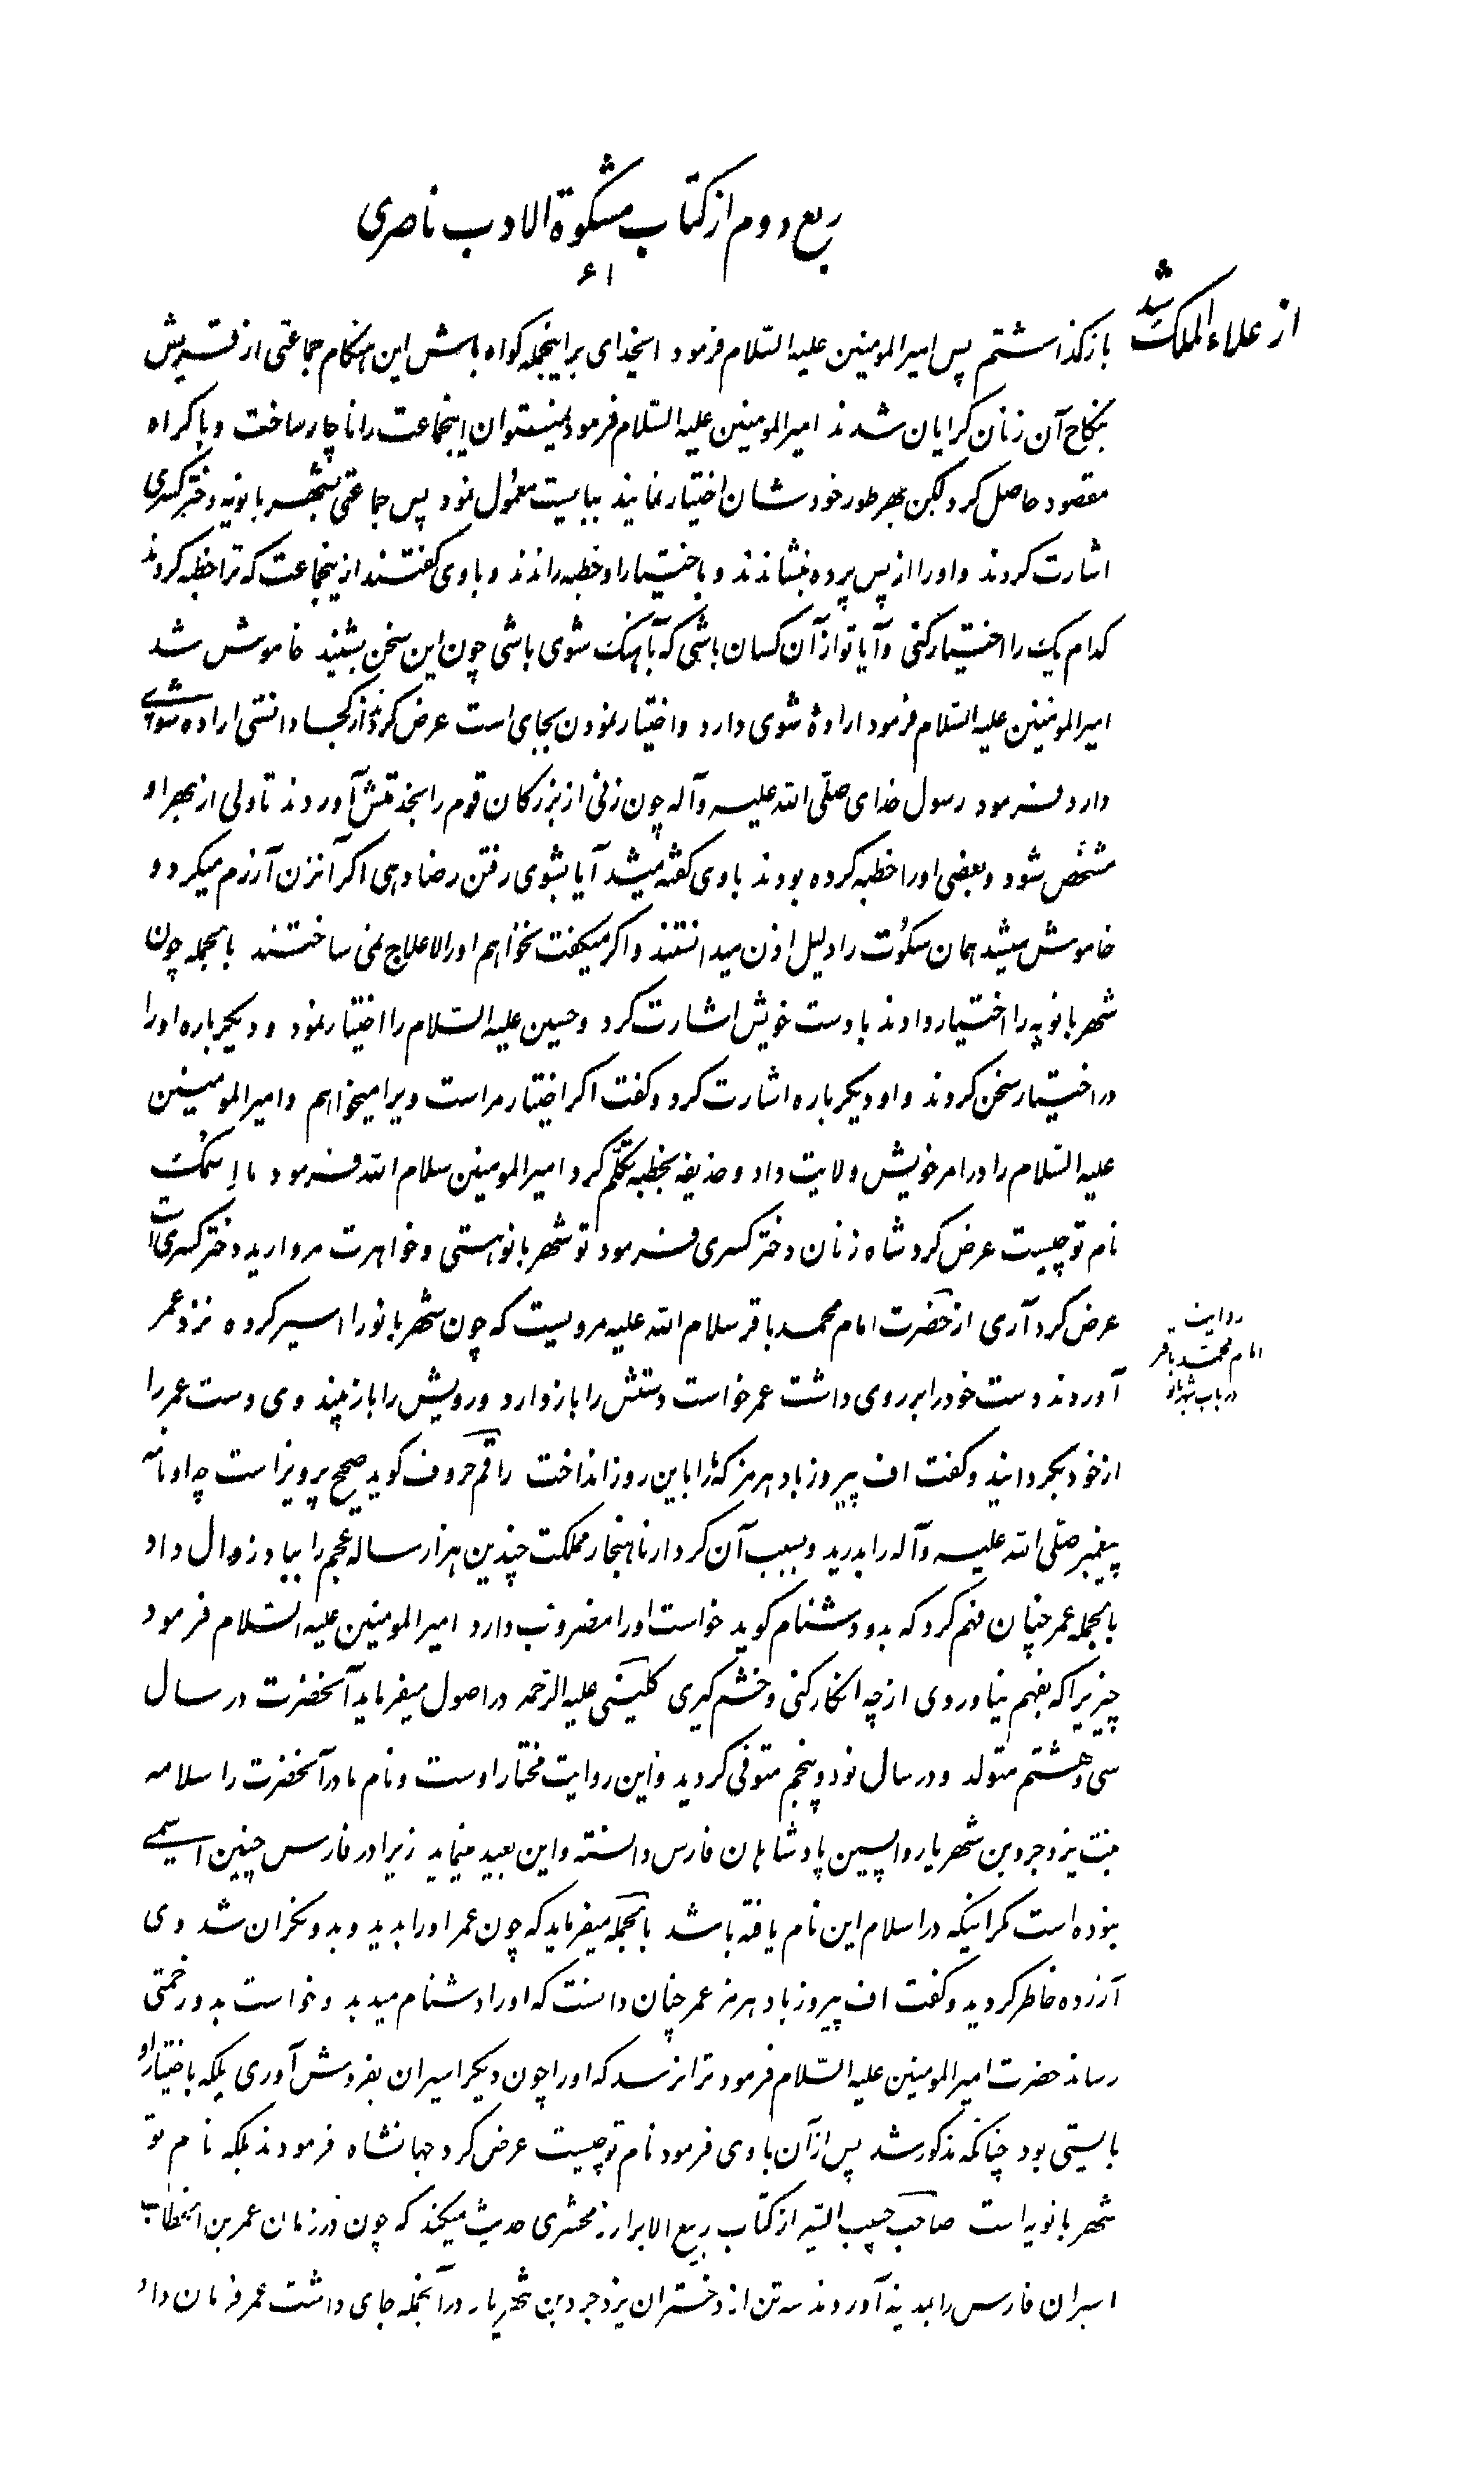 ربع دوم از کتاب مشکوة الادب ناصری
۶۱
از علاء الملک شد
بازکذاشتم پس امیرالمومنین علیه السّلام فرمود ایخدای براینجمله کواه باش این هنکام جماعتی از قریش
بنکاح آن زنان کرایان شدند امیرالمومنین علیه السّلام فرمود نمیتوان اینجماعت را ناچار ساخت و باکراه
مقصود حاصل کرد لکن بهر طور خودشان اختیار نمایند ببایست معمول نمود پس جماعتی بشهربانویه دختر کسری
اشارت کردند و اورا از پس پرده بنشاندند و باختیار او خطبه راندند و باوی کفتند ازینجماعت که ترا خطبه کردند
کدام یک را اختیار کنی و آیا تو از آن کسان باشی که بآهنک شوی باشی چون این سخن بشنید خاموش شد
امیرالمومنین علیه السّلام فرمود ارادۀ شوی دارد و اختیار نمودن بجای است عرض کردند از کجا دانستی اراده شوی
دارد فرمود رسول خدای صلّی الله علیه وآله چون زنی از بزرکان قوم را بخدمتش آوردند تا ولی از بهر او
مشخّص شود و بعضی اورا خطبه کرده بودند باوی کفته میشد آیا بشوی رفتن رضا دهی اکر آنزن آزرم میکرد و
خاموش میشد همان سکوت را دلیل اذن میدانستند و اکر میکفت نخواهم اورا لاعلاج نمی ساختند بالجمله چون
شهربانویه را اختیار دادند بادست خویش اشارت کرد و حسین علیه السّلام را اختیار نمود و دیکر باره اورا
در اختیار سخن کردند و او دیکر باره اشارت کرد و کفت اکر اختیار مراست ویرا میخواهم و امیرالمومنین
علیه السّلام را در امر خویش ولایت داد و حذیفه بخطبه تکلّم کرد امیرالمومنین سلام الله فرمود ما اسمک
نام تو چیست عرض کرد شاه زنان دختر کسری فرمود تو شهربانو هستی و خواهرت مروارید دختر کسری است
عرض کرد آری از حضرت امام محمد باقر سلام الله علیه مرویست که چون شهربانو را اسیر کرده نزد عمر
روایت
امام محمد باقر
در باب شهربانو
آوردند دست خود را بر روی داشت عمر خواست دستش را باز دارد و رویش را باز بیند وی دست عمر را
از خود بکردانید و کفت اف پیروز باد هرمز که ترا باین روز انداخت راقم حروف کوید صحیح پرویز است چه او نامه
پیغمبر صلّی الله علیه وآله را بدرید و بسبب آن کردار ناهنجار مملکت چندین هزار ساله عجم را بباد زوال داد
بالجمله عمر چنان فهم کرد که بدو دشنام کوید خواست اورا مضروب دارد امیرالمومنین علیه السّلام فرمود
چیزیرا که بفهم نیاوردی از چه انکار کنی و خشم کیری کلینی علیه الرّحمه در اصول میفرماید آنحضرت در سال
سی و هشتم متولد و در سال نود و پنجم متوفی کردید و این روایت مختار اوست و نام مادر آنحضرت را سلامه
بنت یزدجرد بن شهریار واپسین پادشاهان فارس دانسته و این بعید مینماید زیرا در فارس چنین اسمی
نبوده است مکر اینکه در اسلام این نام یافته باشد بالجمله میفرماید که چون عمر اورا بدید و بدو نکران شد وی
آزرده خاطر کردید و کفت اف پیروز باد هرمز عمر چنان دانست که اورا دشنام میدهد و خواست بدو زحمتی
رساند حضرت امیرالمومنین علیه السّلام فرمود ترا نرسد که اورا چون دیکر اسیران بفروش آوری بلکه باختیار او
بایستی بود چنانکه مذکور شد پس از آن باوی فرمود نام تو چیست عرض کرد جهانشاه فرمودند بلکه نام تو
شهربانویه است صاحب حبیب السّیر از کتاب ربیع الابرار زمخشری حدیث میکند که چون در زمان عمر بن الخطاب
اسیران فارس را بمدینه آوردند سه تن از دختران یزدجرد بن شهریار در آنجمله جای داشت عمر فرمان داد